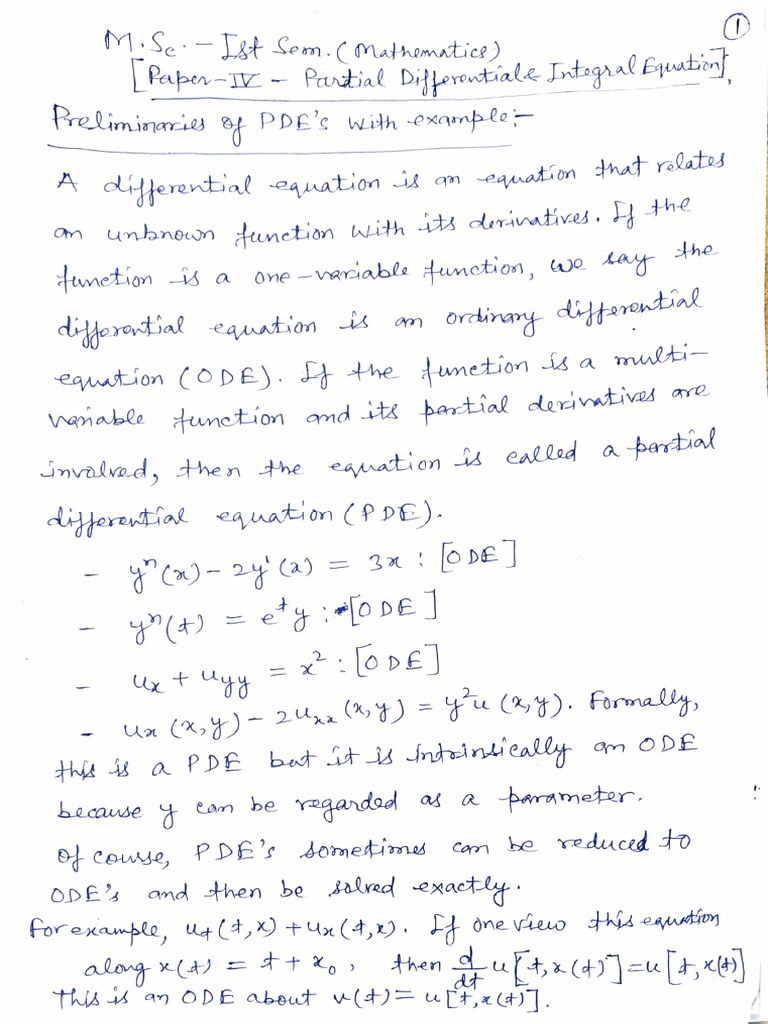 1
M.Sc. - Ist Sem. (Mathematics)
[Paper-IV - Partial Differential & Integral Equation],
Preliminaries of PDE's with example:-
A differential equation is an equation that relates
an unknown function with its derivatives. If the
function is a one-variable function, we say the
differential equation is an ordinary differential
equation (ODE). If the function is a multi-
variable function and its partial derivatives are
involved, then the equation is called a partial
differential equation (PDE).
- yⁿ(x) - 2y'(x) = 3x : [ODE]
- yⁿ(t) = eᵗy : [ODE]
- uₓ + u_yy = x² : [ODE]
- uₓ(x,y) - 2uₓₓ(x,y) = y²u(x,y). Formally,
this is a PDE but it is intrinsically an ODE
because y can be regarded as a parameter.
Of course, PDE's sometimes can be reduced to
ODE's and then be solved exactly.
For example, uₜ(t,x) + uₓ(t,x). If one view this equation
along x(t) = t + x₀, then d/dt u[t,x(t)] = u[t,x(t)]
This is an ODE about v(t) = u[t,x(t)].